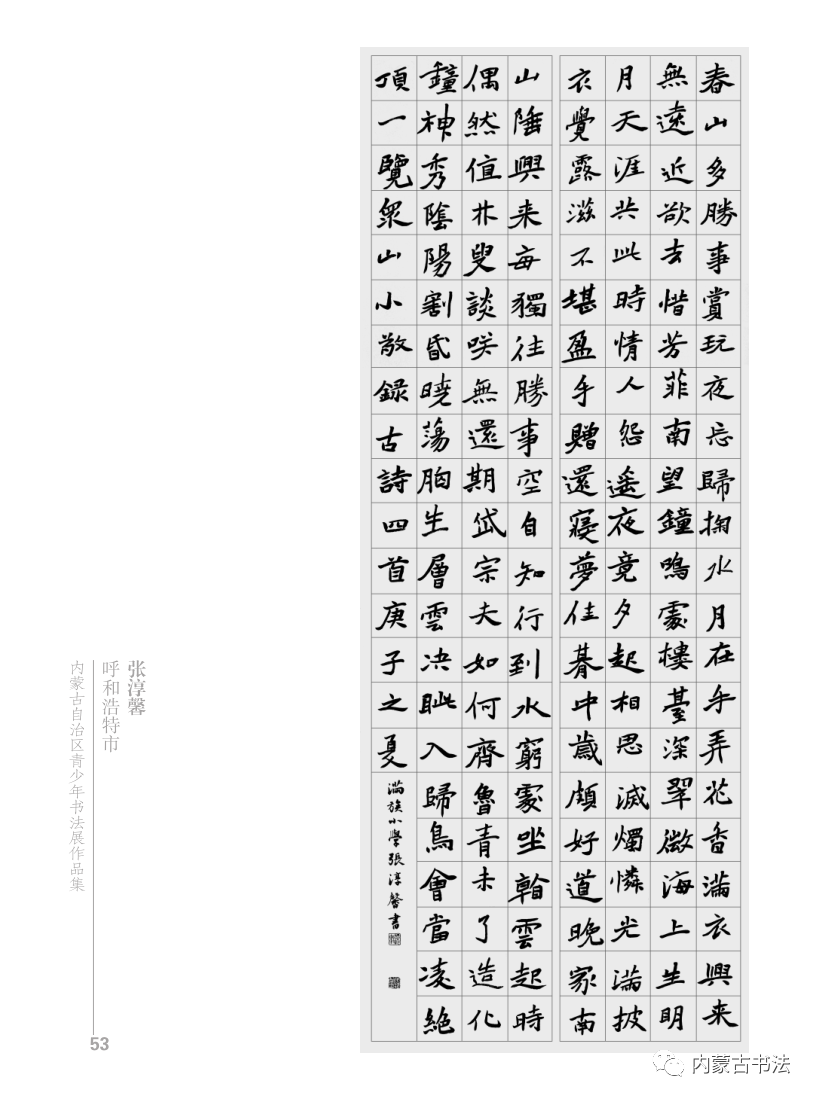 春山多勝事賞玩夜忘歸掬水月在手弄花香滿衣興来
無遠近欲去惜芳菲南望鐘鳴處樓臺深翠微海上生明
月天涯共此時情人怨遥夜竟夕起相思滅燭憐光滿披
衣覺露滋不堪盈手贈還寝夢佳朞中歲頗好道晚家南
山陲興来每獨往勝事空自知行到水窮處坐看雲起時
偶然值林叟談咲無還期岱宗夫如何齊魯青未了造化
鐘神秀陰陽割昏曉蕩胸生層雲决眦入歸鳥會當凌絶
頂一覽眾山小敬録古詩四首庚子之夏
滿族小學張淳馨書
张淳馨
呼和浩特市
内蒙古自治区青少年书法展作品集
53
内蒙古书法